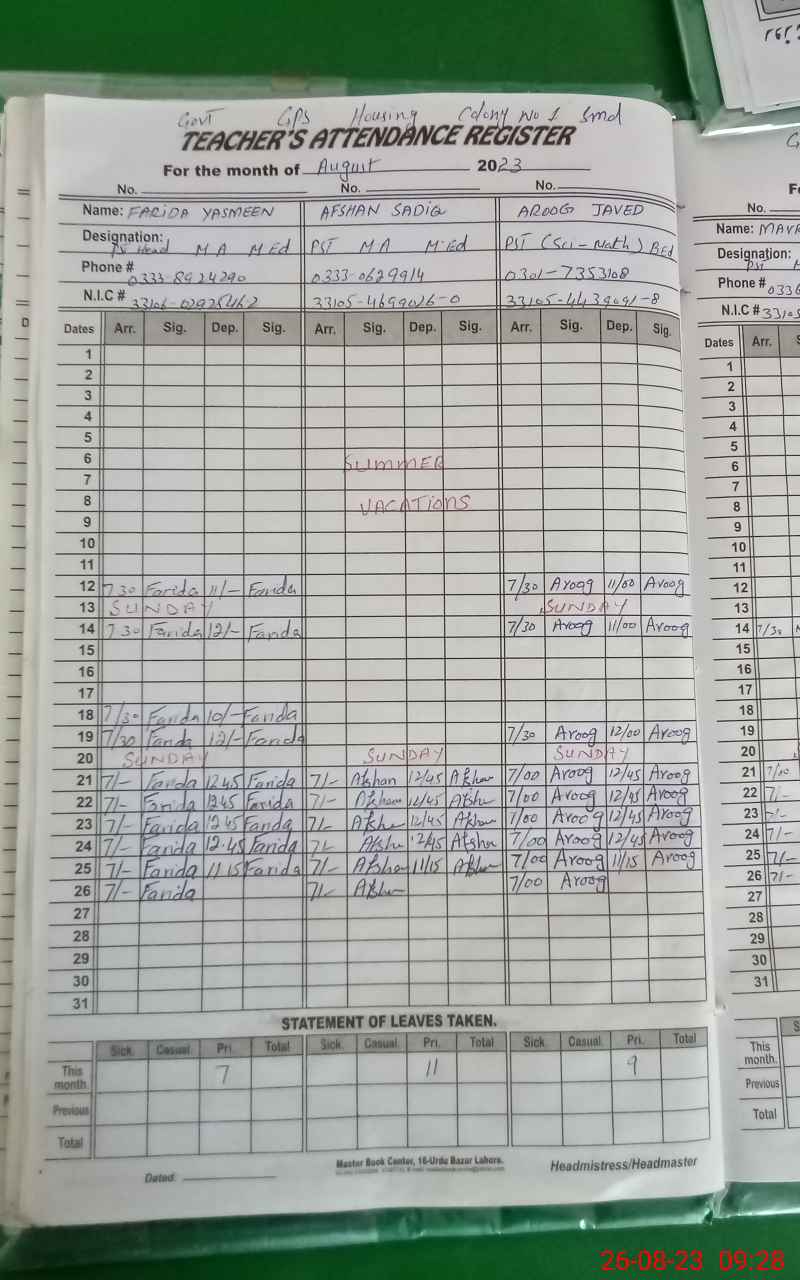 Govt GPS Housing Colony No 1 Smd
TEACHER'S ATTENDANCE REGISTER
For the month of August 2023
No. No. No.
Name: FARIDA YASMEEN AFSHAN SADIQ AROOG JAVED
Designation: Head M A M Ed PST M A M.Ed PST (Sci-Math) BEd
Phone # 0333-8924290 0333-0629914 0301-7353108
N.I.C # 33106-02925462 33105-4699016-0 33105-4439091-8
Dates Arr. Sig. Dep. Sig. Arr. Sig. Dep. Sig. Arr. Sig. Dep. Sig.
1
2
3
4
5
6 SUMMER
7
8 VACATIONS
9
10
11
12 7 30 Farida 11/- Farida 7/30 Aroog 11/00 Aroog
13 SUNDAY SUNDAY
14 7 30 Farida 12/- Farida 7/30 Aroog 11/00 Aroog
15
16
17
18 7/30 Farida 10/- Farida
19 7/30 Farida 12/- Farida 7/30 Aroog 12/00 Aroog
20 SUNDAY SUNDAY SUNDAY
21 7/- Farida 12 45 Farida 7/- Afshan 12/45 Afshan 7/00 Aroog 12/45 Aroog
22 7/- Farida 12 45 Farida 7/- Afshan 12/45 Afshan 7/00 Aroog 12/45 Aroog
23 7/- Farida 12 45 Farida 7/- Afshan 12/45 Afshan 7/00 Aroog 12/45 Aroog
24 7/- Farida 12.45 Farida 7/- Afshan 12/45 Afshan 7/00 Aroog 12/45 Aroog
25 7/- Farida 11 15 Farida 7/- Afshan 11/15 Afshan 7/00 Aroog 11/15 Aroog
26 7/- Farida 7/- Afshan 7/00 Aroog
27
28
29
30
31
STATEMENT OF LEAVES TAKEN.
Sick. Casual. Pri. Total Sick. Casual. Pri. Total Sick. Casual. Pri. Total
This month. 7 11 9
Previous
Total
Dated:
Master Book Center, 16-Urdu Bazar Lahore.
Headmistress/Headmaster
No.
Name:
Designation:
Phone #
N.I.C #
Dates Arr.
1
2
3
4
5
6
7
8
9
10
11
12
13
14 7/30
15
16
17
18
19
20
21 7/00
22 7/-
23 7/-
24 7/-
25 7/-
26 7/-
27
28
29
30
31
This month.
Previous
Total
26-08-23 09:28